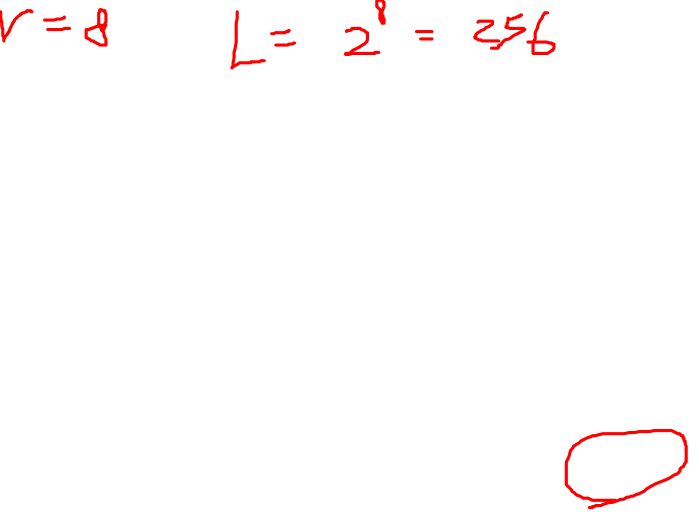 r = 8 L = 2⁸ = 256